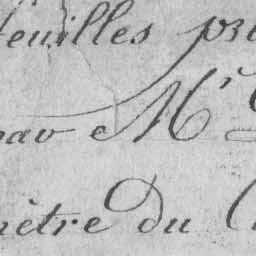 feuilles pri
par M.r
mètre du C